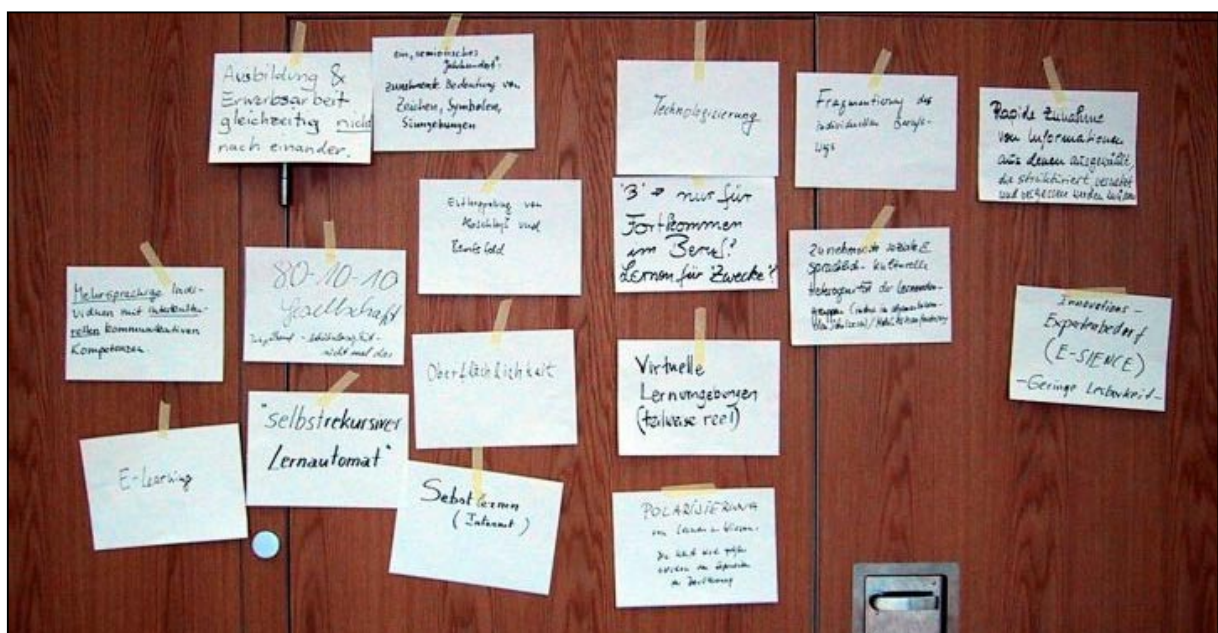 Ausbildung &
Erwerbsarbeit
gleichzeitig nicht
nach einander.
ein "semiotisches
Jahrhundert":
zunehmende Bedeutung von
Zeichen, Symbolen,
Sinngebungen
Technologisierung
Fragmentierung des
individuellen Berufs-
wegs
Rapide Zunahme
von Informationen
aus denen ausgewählt,
die strukturiert, verwertet
und vergessen werden müssen
Entkoppelung von
Abschluss und
Berufsfeld
'B' → nur für
Fortkommen
im Beruf?
Lernen für 'Zwecke'?
Zunehmende soziale &
Sprachlich-kulturelle
Heterogenität der Lernenden-
gruppen
Mehrsprachige Indi-
viduen mit interkultu-
rellen kommunikativen
Kompetenzen.
80-10-10
Gesellschaft
nicht mal das
Innovations-
Expertenbedarf
(E-SIENCE)
-Geringe Lesbarkeit-
Oberflächlichkeit
Virtuelle
Lernumgebungen
(teilweise reel)
"selbstrekursiver
Lernautomat"
E-Learning
Sebstlernen
(Internet)
POLARISIERUNG
von Lernen u. Wissen.